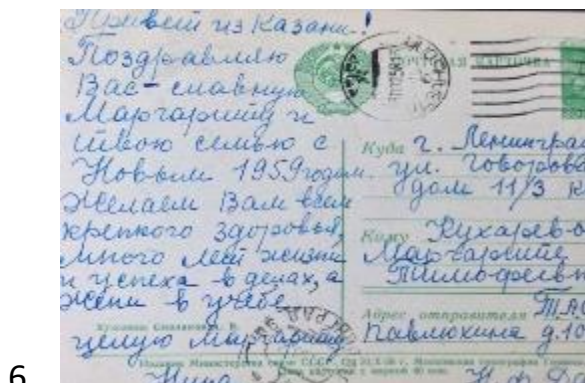 Привет из Казани!
Поздравляю
Вас - славную
Маргариту и
твою семью с
Новым 1959 годом.
Желаем Вам всем
крепкого здоровья,
много лет жизни
и успеха в делах, а
Жени в учебе
целую Маргариту
Нина
ПОЧТОВАЯ КАРТОЧКА
Куда г. Ленинград
ул. Говорова
дом 11/3
Кому Кухарево
Маргарите
Тимофеевн
Адрес отправителя ТАС
Павлюхина д.10
Художник
Издание Министерства связи СССР
6